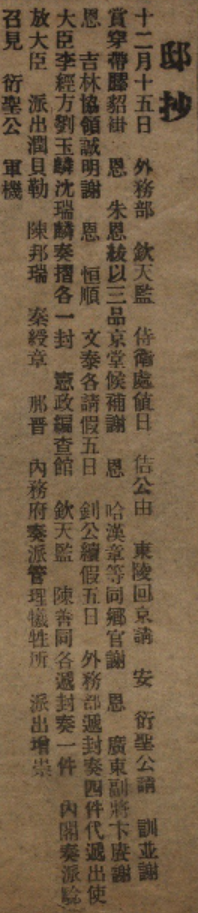 邸抄
十二月十五日　外務部　欽天監　侍衛處值日　佶公由　東陵回京請　安　衍聖公請　訓並謝
賞穿帶膆貂褂　恩　朱恩紱以三品京堂候補謝　恩　哈漢章等同鄉官謝　恩　廣東副將卞賡謝
恩　吉林協領誠明謝　恩　恒順　文泰各請假五日　釗公續假五日　外務部遞封奏四件代遞出使
大臣李經方劉玉麟沈瑞麟奏摺各一封　憲政編查館　欽天監　陳善同各遞封奏一件　內閣奏派驗
放大臣　派出潤貝勒　陳邦瑞　秦綬章　那晋　內務府奏派管理犧牲所　派出增崇
召見　衍聖公　軍機